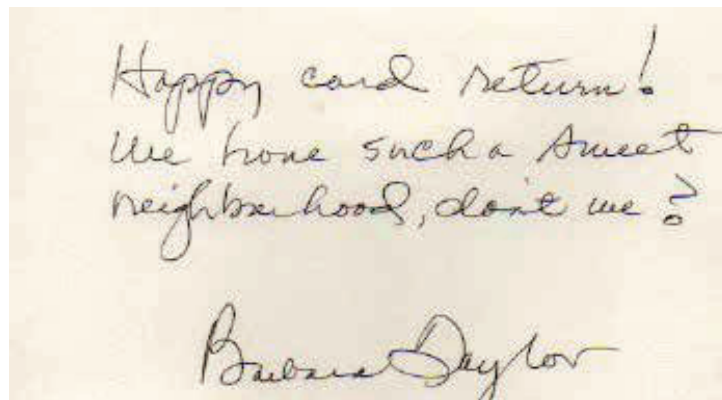 Happy card return!
We have such a sweet
neighborhood, don't we?
Barbara Taylor